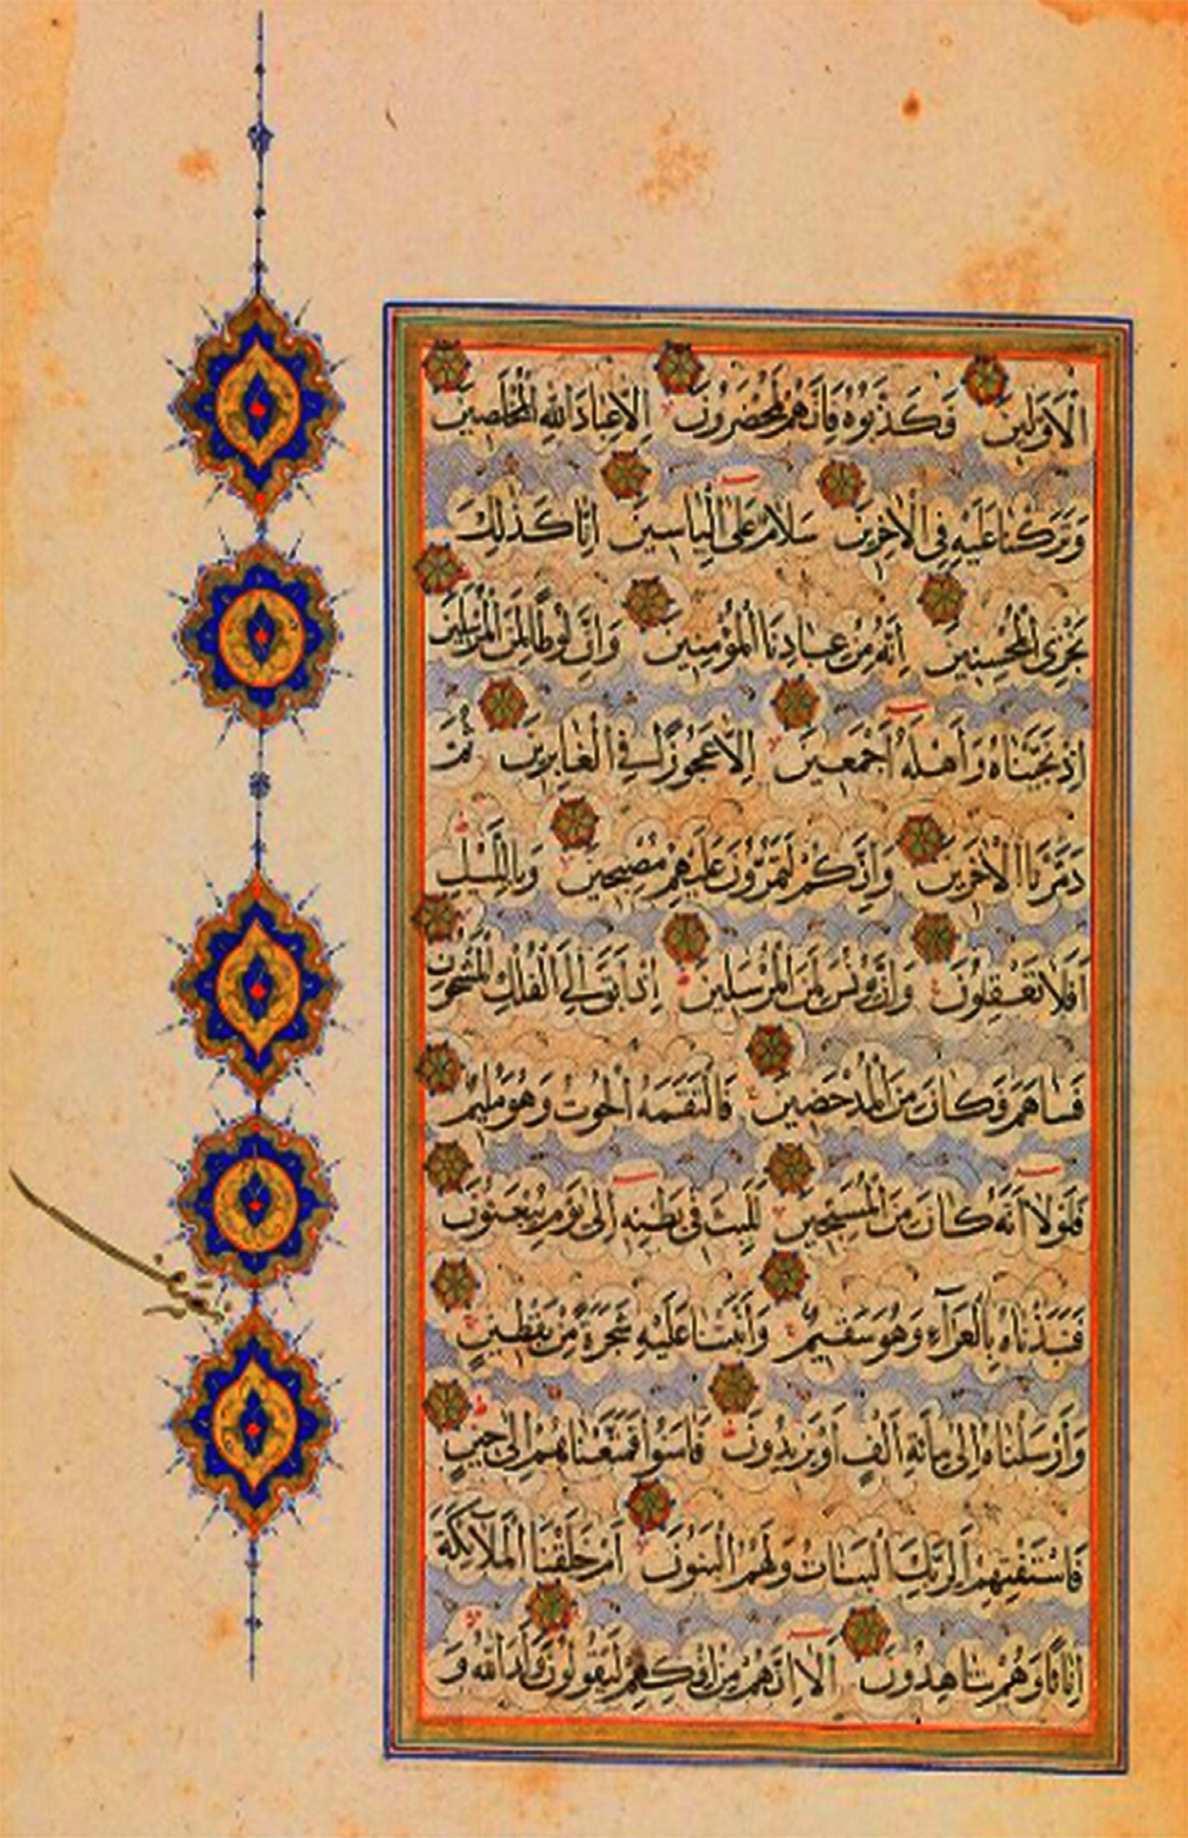 الْأَوَّلِينَ فَكَذَّبُوهُ فَإِنَّهُمْ لَمُحْضَرُونَ إِلَّا عِبَادَ اللَّهِ الْمُخْلَصِينَ
وَتَرَكْنَا عَلَيْهِ فِي الْآخِرِينَ سَلَامٌ عَلَى إِلْيَاسِينَ إِنَّا كَذَلِكَ
نَجْزِي الْمُحْسِنِينَ إِنَّهُ مِنْ عِبَادِنَا الْمُؤْمِنِينَ وَإِنَّ لُوطًا لَمِنَ الْمُرْسَلِينَ
إِذْ نَجَّيْنَاهُ وَأَهْلَهُ أَجْمَعِينَ إِلَّا عَجُوزًا فِي الْغَابِرِينَ ثُمَّ
دَمَّرْنَا الْآخَرِينَ وَإِنَّكُمْ لَتَمُرُّونَ عَلَيْهِمْ مُصْبِحِينَ وَبِاللَّيْلِ
أَفَلَا تَعْقِلُونَ وَإِنَّ يُونُسَ لَمِنَ الْمُرْسَلِينَ إِذْ أَبَقَ إِلَى الْفُلْكِ الْمَشْحُونِ
فَسَاهَمَ فَكَانَ مِنَ الْمُدْحَضِينَ فَالْتَقَمَهُ الْحُوتُ وَهُوَ مُلِيمٌ
فَلَوْلَا أَنَّهُ كَانَ مِنَ الْمُسَبِّحِينَ لَلَبِثَ فِي بَطْنِهِ إِلَى يَوْمِ يُبْعَثُونَ
فَنَبَذْنَاهُ بِالْعَرَاءِ وَهُوَ سَقِيمٌ وَأَنْبَتْنَا عَلَيْهِ شَجَرَةً مِنْ يَقْطِينٍ
وَأَرْسَلْنَاهُ إِلَى مِائَةِ أَلْفٍ أَوْ يَزِيدُونَ فَآمَنُوا فَمَتَّعْنَاهُمْ إِلَى حِينٍ
فَاسْتَفْتِهِمْ أَلِرَبِّكَ الْبَنَاتُ وَلَهُمُ الْبَنُونَ أَمْ خَلَقْنَا الْمَلَائِكَةَ
إِنَاثًا وَهُمْ شَاهِدُونَ أَلَا إِنَّهُمْ مِنْ إِفْكِهِمْ لَيَقُولُونَ وَلَدَ اللَّهُ وَ